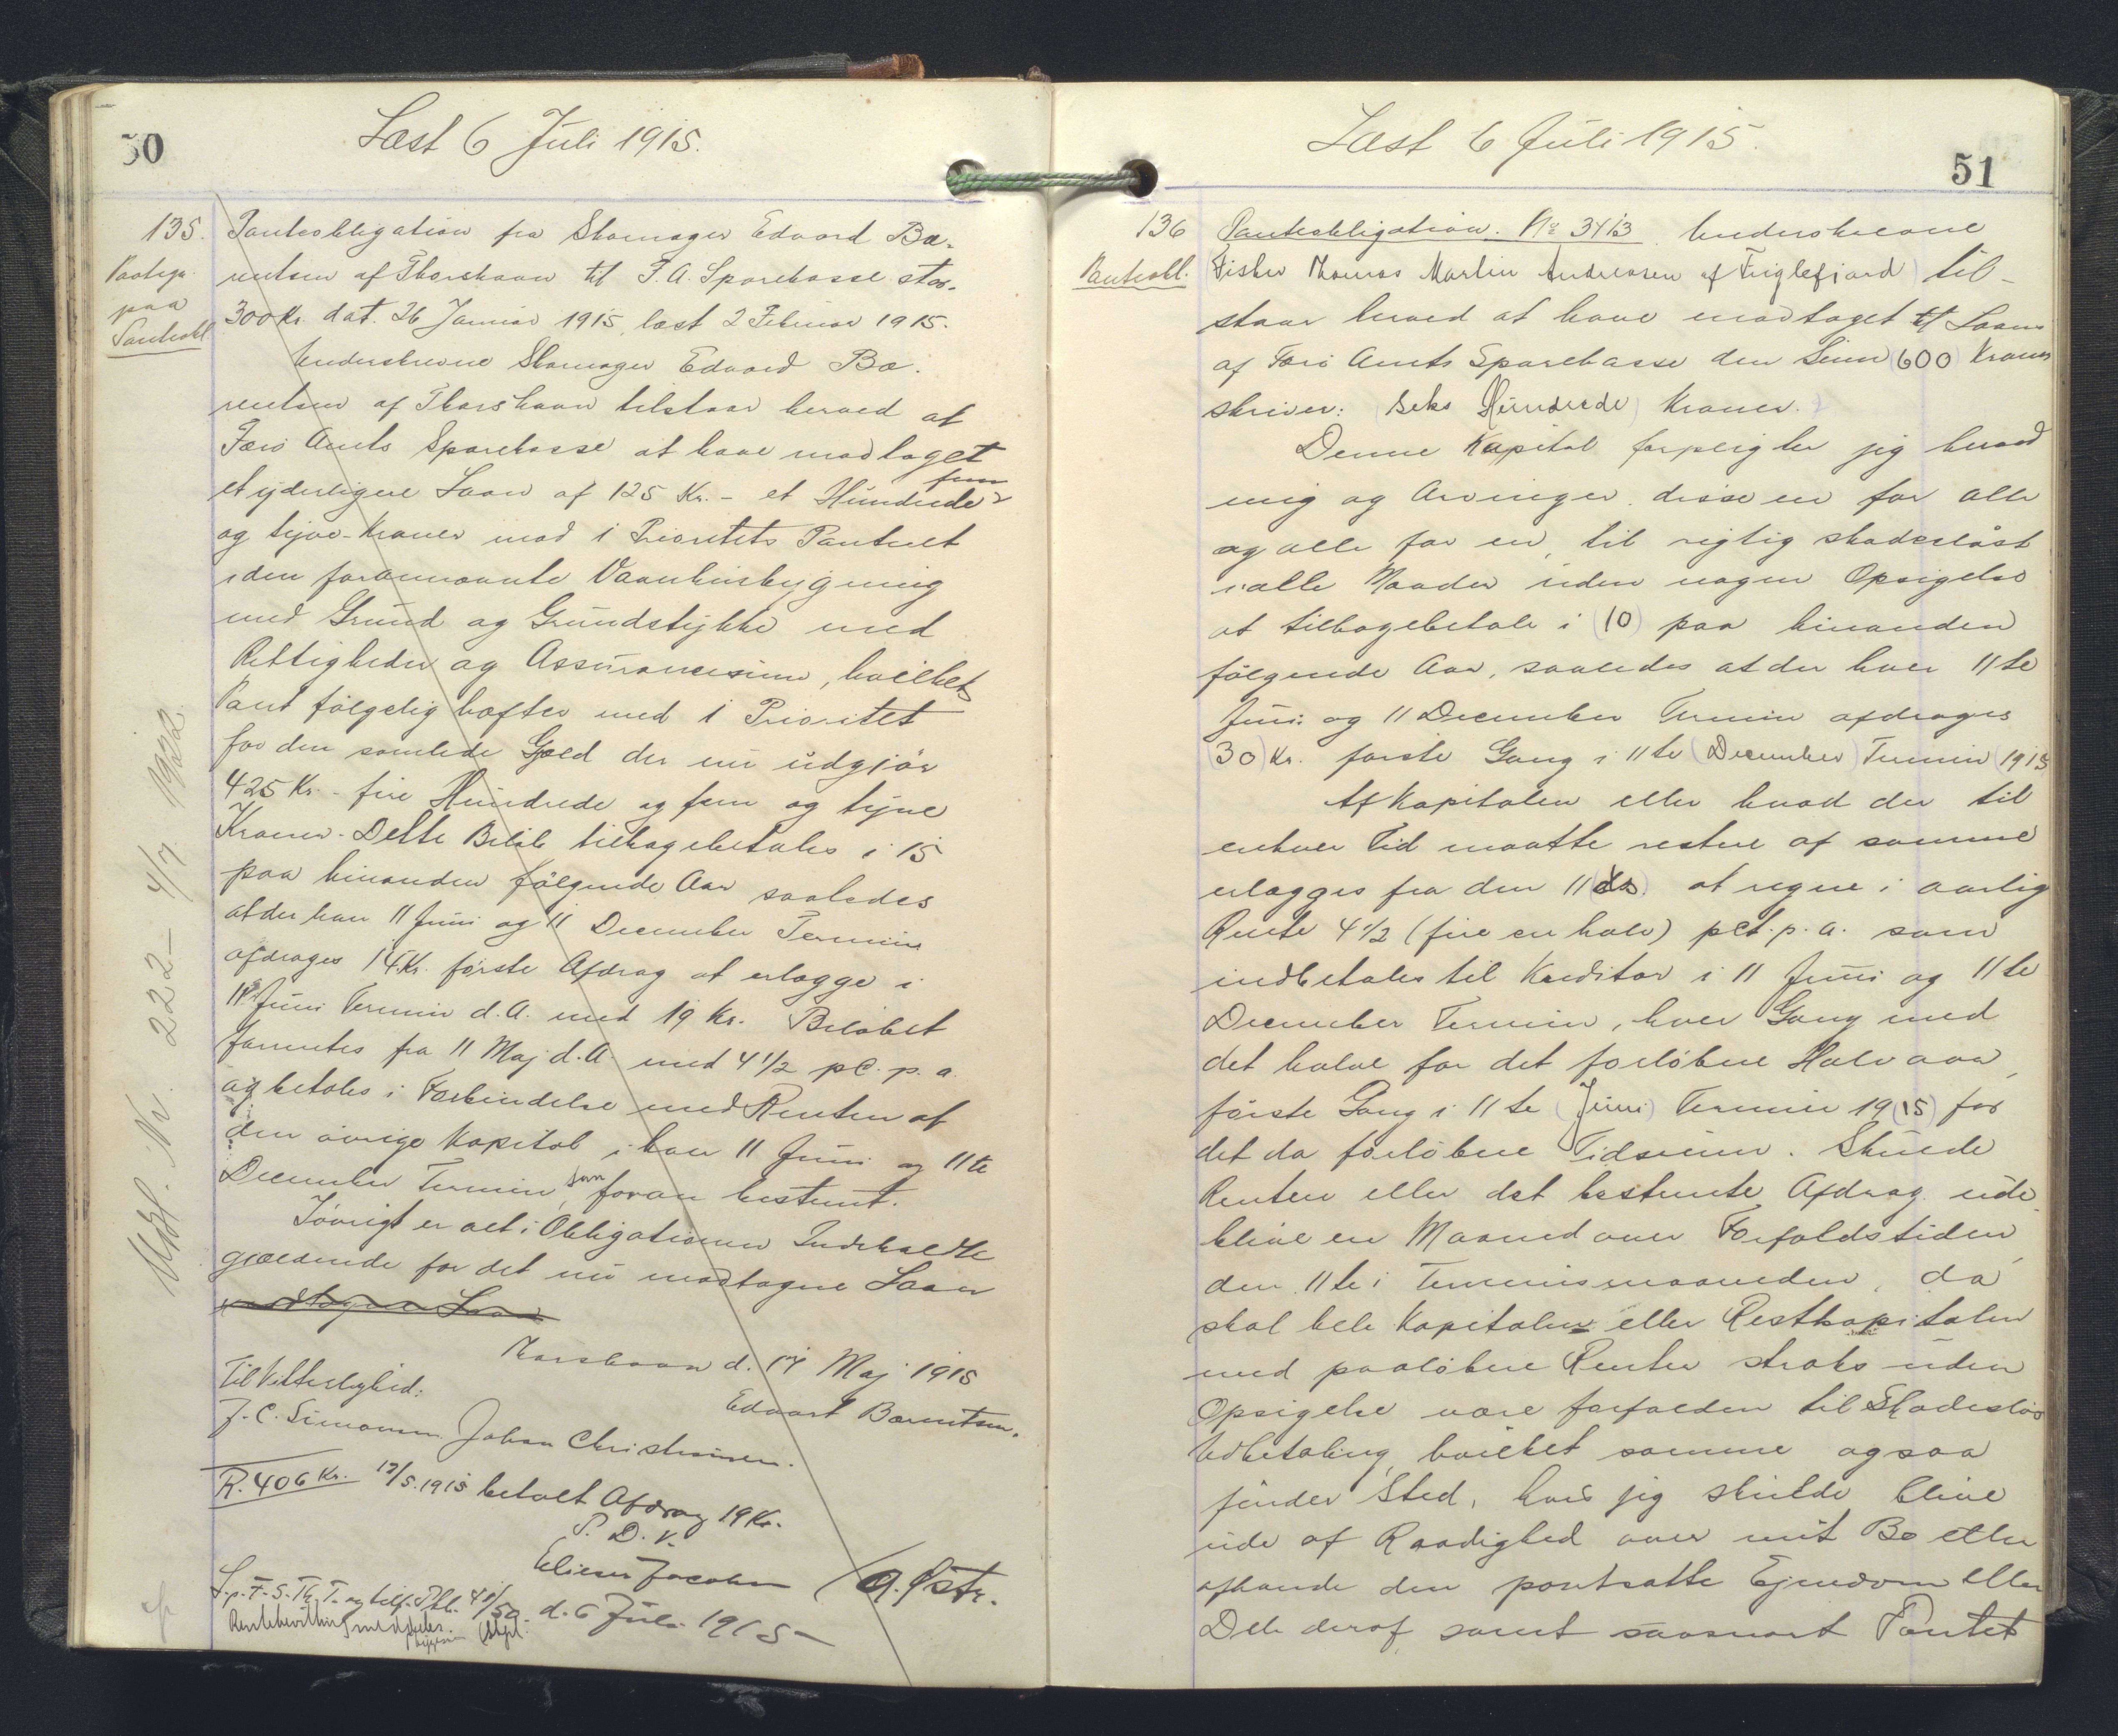 50
Læst 6 Juli 1915.
135.
Paategn.
paa
Panteobl.
Panteobligation fra Skomager Edvard Bæ-
rentsen af Thorshavn til F. A. Sparekasse stor
300 Kr. dat. 26 Januar 1915, læst 2 Februar 1915.
Underskrevne Skomager Edvard Bæ-
rentsen af Thorshavn tilstaar herved af
Færø Amts Sparekasse at have modtaget
et yderligere Laan af 125 Kr. - et Hundrede fem
og tyve Kroner mod 1 Prioritets Panteret
i den forannævnte Vaanhusbygning
med Grund og Grundstykke med
Rettigheder og Assurancesum, hvilket
Pant følgelig hæfter med 1 Prioritet
for den samlede Gæld der nu udgjør
425 Kr - fire Hundrede og fem og tyve
Kroner. Dette Beløb tilbagebetales i 15
paa hinanden følgende Aar saaledes
at der hver 11 Juni og 11 December Termin
afdrages 14 Kr. første Afdrag at erlægge i
11 Juni Termin d. A. med 19 Kr. Beløbet
forrentes fra 11 Maj d. A. med 4 1/2 pC. p. a.
og betales i Forbindelse med Renten af
den øvrige Kapital i hver 11 Juni og 11te
December Termin, som foran bestemt.
Iøvrigt er alt i Obligationen Indeholdte
gældende for det nu modtagne Laan
modtagne Laan
Thorshavn d. 17 Maj 1915
Edvart Bærentsen.
Til Vitterlighed:
J. C. Simonsen Johan Christiansen.
R. 406 Kr. 17/5.1915 betalt Afdrag 19 Kr.
P. D. V.
Elieser Jacobsen / A. Østr.
d. 6 Juli 1915 -
Udsl. Nr. 222 - 4/7 1922.
51
Læst 6 Juli 1915.
136
Panteobl.
Panteobligation. No 3413. Underskrevne
Fisker Thomas Martin Andreasen af Fuglefjord til-
staar herved at have modtaget til Laans
af Færø Amts Sparekasse den Sum (600) Kroner
skriver: (Seks Hundrede) Kroner.
Denne Kapital forpligter jeg herved
mig og Arvinger, disse en for alle
og alle for en, til rigtig skadesløst
i alle Maader uden nogen Opsigelse
at tilbagebetale i (10) paa hinanden
følgende Aar, saaledes at der hver 11te
Juni og 11 December Termin afdrages
(30) Kr. første Gang i 11te (December) Termin (1915
Af Kapitalen eller hvad der til
enhver Tid maatte restere af samme
erlægges fra den 11 ds. at regne i aarlig
Rente 4 1/2 (fire en halv) pCt. p. a. som
indbetales til Kreditor i 11 Juni og 11te
December Termin, hver Gang med
det halve for det forløbne Halvaar,
første Gang i 11te (Juni) Termin 19(15) for
det da forløbne Tidsrum. Skulde
Renten eller det bestemte Afdrag ude
blive en Maaned over Forfaldstiden,
den 11te i Terminsmaaneden, da
skal hele Kapitalen eller Restkapitalen
med paaløbne Renter straks uden
Opsigelse være forfalden til Skadesløs
Udbetaling, hvilket samme ogsaa
finder Sted, hvis jeg skulde blive
ude af Raadighed over mit Bo eller
afhænde den pantsatte Ejendom eller
Dele deraf, samt saasnart Pantet